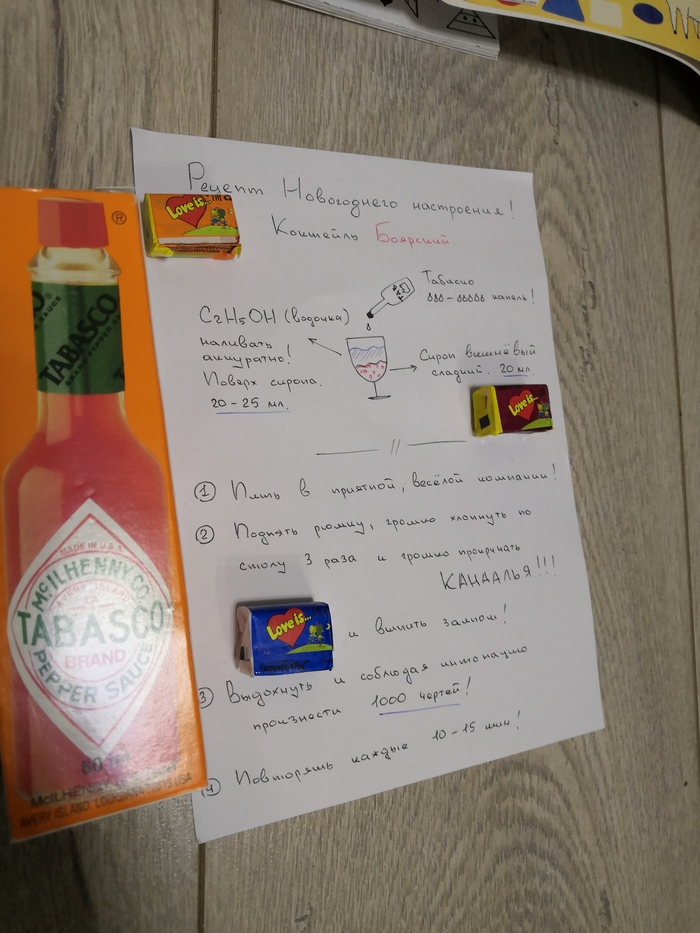 Рецепт Новогоднего настроения!
Коктейль Боярский.
Табаско
- капель!
C2H5OH (водочка)
наливать
аккуратно!
Поверх сиропа.
20-25 мл.
Сироп вишнёвый
сладкий. 20 мл.
1 Пить в приятной, весёлой компании!
2 Поднять рюмку, громко хлопнуть по
столу 3 раза и громко прокричать
КАНДАЛЬЯ!!!
и выпить залпом!
3 Выдохнуть и соблюдая интонацию
произнести 1000 чертей!
4 Повторять каждые 10-15 мин!
Love is...
Love is...
Love is...
®
TABASCO
MADE IN U.S.A.
McILHENNY CO.
TABASCO
BRAND
PEPPER SAUCE
60 ml
AVERY ISLAND, LOUISIANA 70513 USA